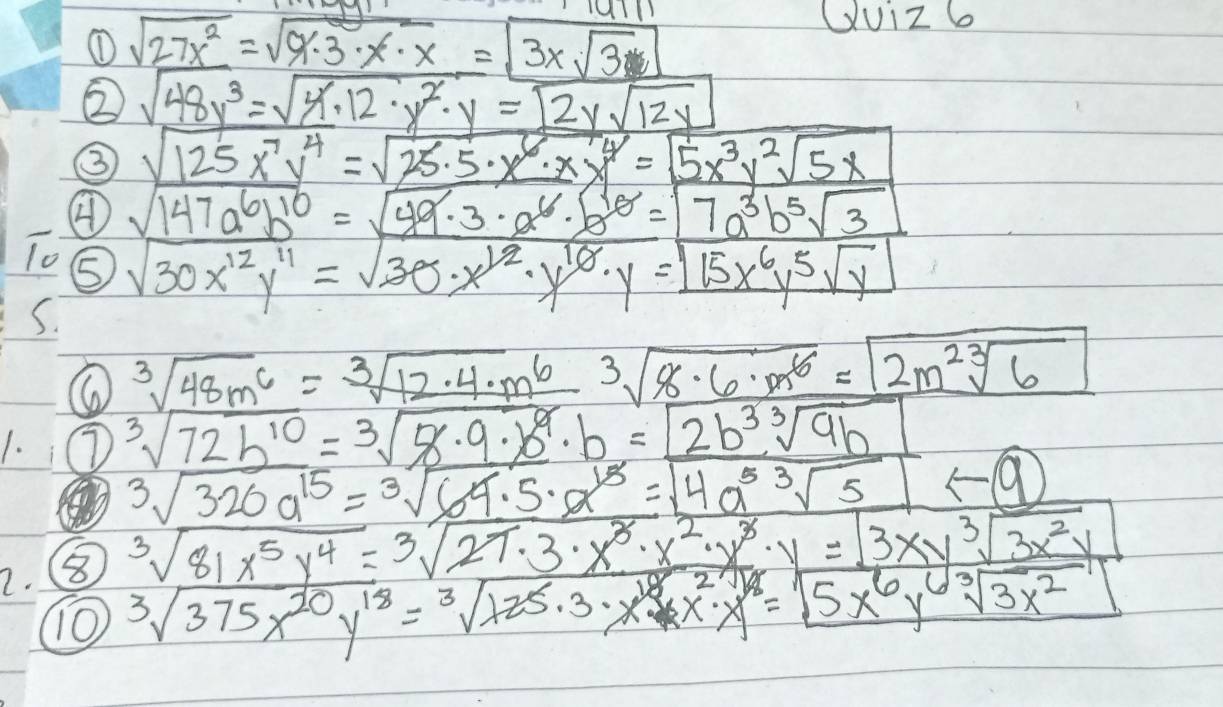 Math Quiz 6
① √27x² = √9·3·x·x = 3x√3
② √48y³ = √4·12·y²·y = 2y√12y
③ √125x⁷y⁴ = √25·5·x⁶·x y⁴ = 5x³y²√5x
④ √147a⁶b¹⁰ = √49·3·a⁶·b¹⁰ = 7a³b⁵√3
To ⑤ √30x¹²y¹¹ = √30·x¹²·y¹⁰·y = 15x⁶y⁵√y
S.
⑥ ³√48m⁶ = ³√12·4·m⁶ ³√8·6·m⁶ = 2m² ³√6
1. ⑦ ³√72b¹⁰ = ³√8·9·b⁹·b = 2b³ ³√9b
³√320a¹⁵ = ³√64·5·a¹⁵ = 4a⁵ ³√5 ← ⑨
2. ⑧ ³√81x⁵y⁴ = ³√27·3·x³·x²·y³·y = 3xy ³√3x²y
⑩ ³√375x²⁰y¹⁸ = ³√125·3·x¹⁸·x²·y¹⁸ = 5x⁶y⁶ ³√3x²